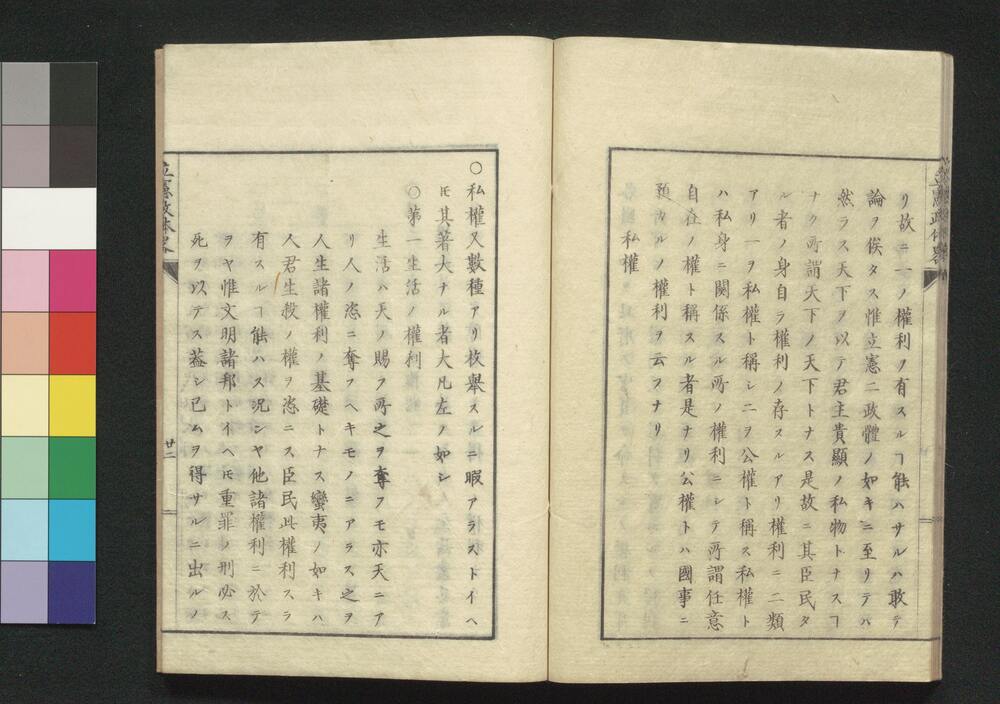 リ故ニ一ノ權利ヲ有スルヿ能ハサルハ敢テ
論ヲ俟タス惟立憲二政體ノ如キニ至リテハ
然ラス天下ヲ以テ君主貴顯ノ私物トナスヿ
ナク所謂天下ノ天下トナス是故ニ其臣民タ
ル者ノ身自ラ權利ノ存スルアリ權利ニ二類
アリ一ヲ私權ト稱シ二ヲ公權ト稱ス私權ト
ハ私身ニ關係スル所ノ權利ニシテ所謂任意
自在ノ權ト稱スル者是ナリ公權トハ國事ニ
預カルノ權利ヲ云フナリ
私權
○私權又數種アリ枚舉スルニ暇アラストイヘ
𪜈其著大ナル者大凡左ノ如シ
○第一生活ノ權利
生活ハ天ノ賜フ所之ヲ奪フモ亦天ニア
リ人ノ恣ニ奪フヘキモノニアラス之ヲ
人生諸權利ノ基礎トナス蠻夷ノ如キハ
人君生殺ノ權ヲ恣ニス臣民此權利スラ
有スルヿ能ハス況ンヤ他諸權利ニ於テ
ヲヤ惟文明諸邦トイヘ𪜈重罪ノ刑必ス
死ヲ以テス蓋シ已ムヲ得サルニ出ルノ
立憲政体略
廿二